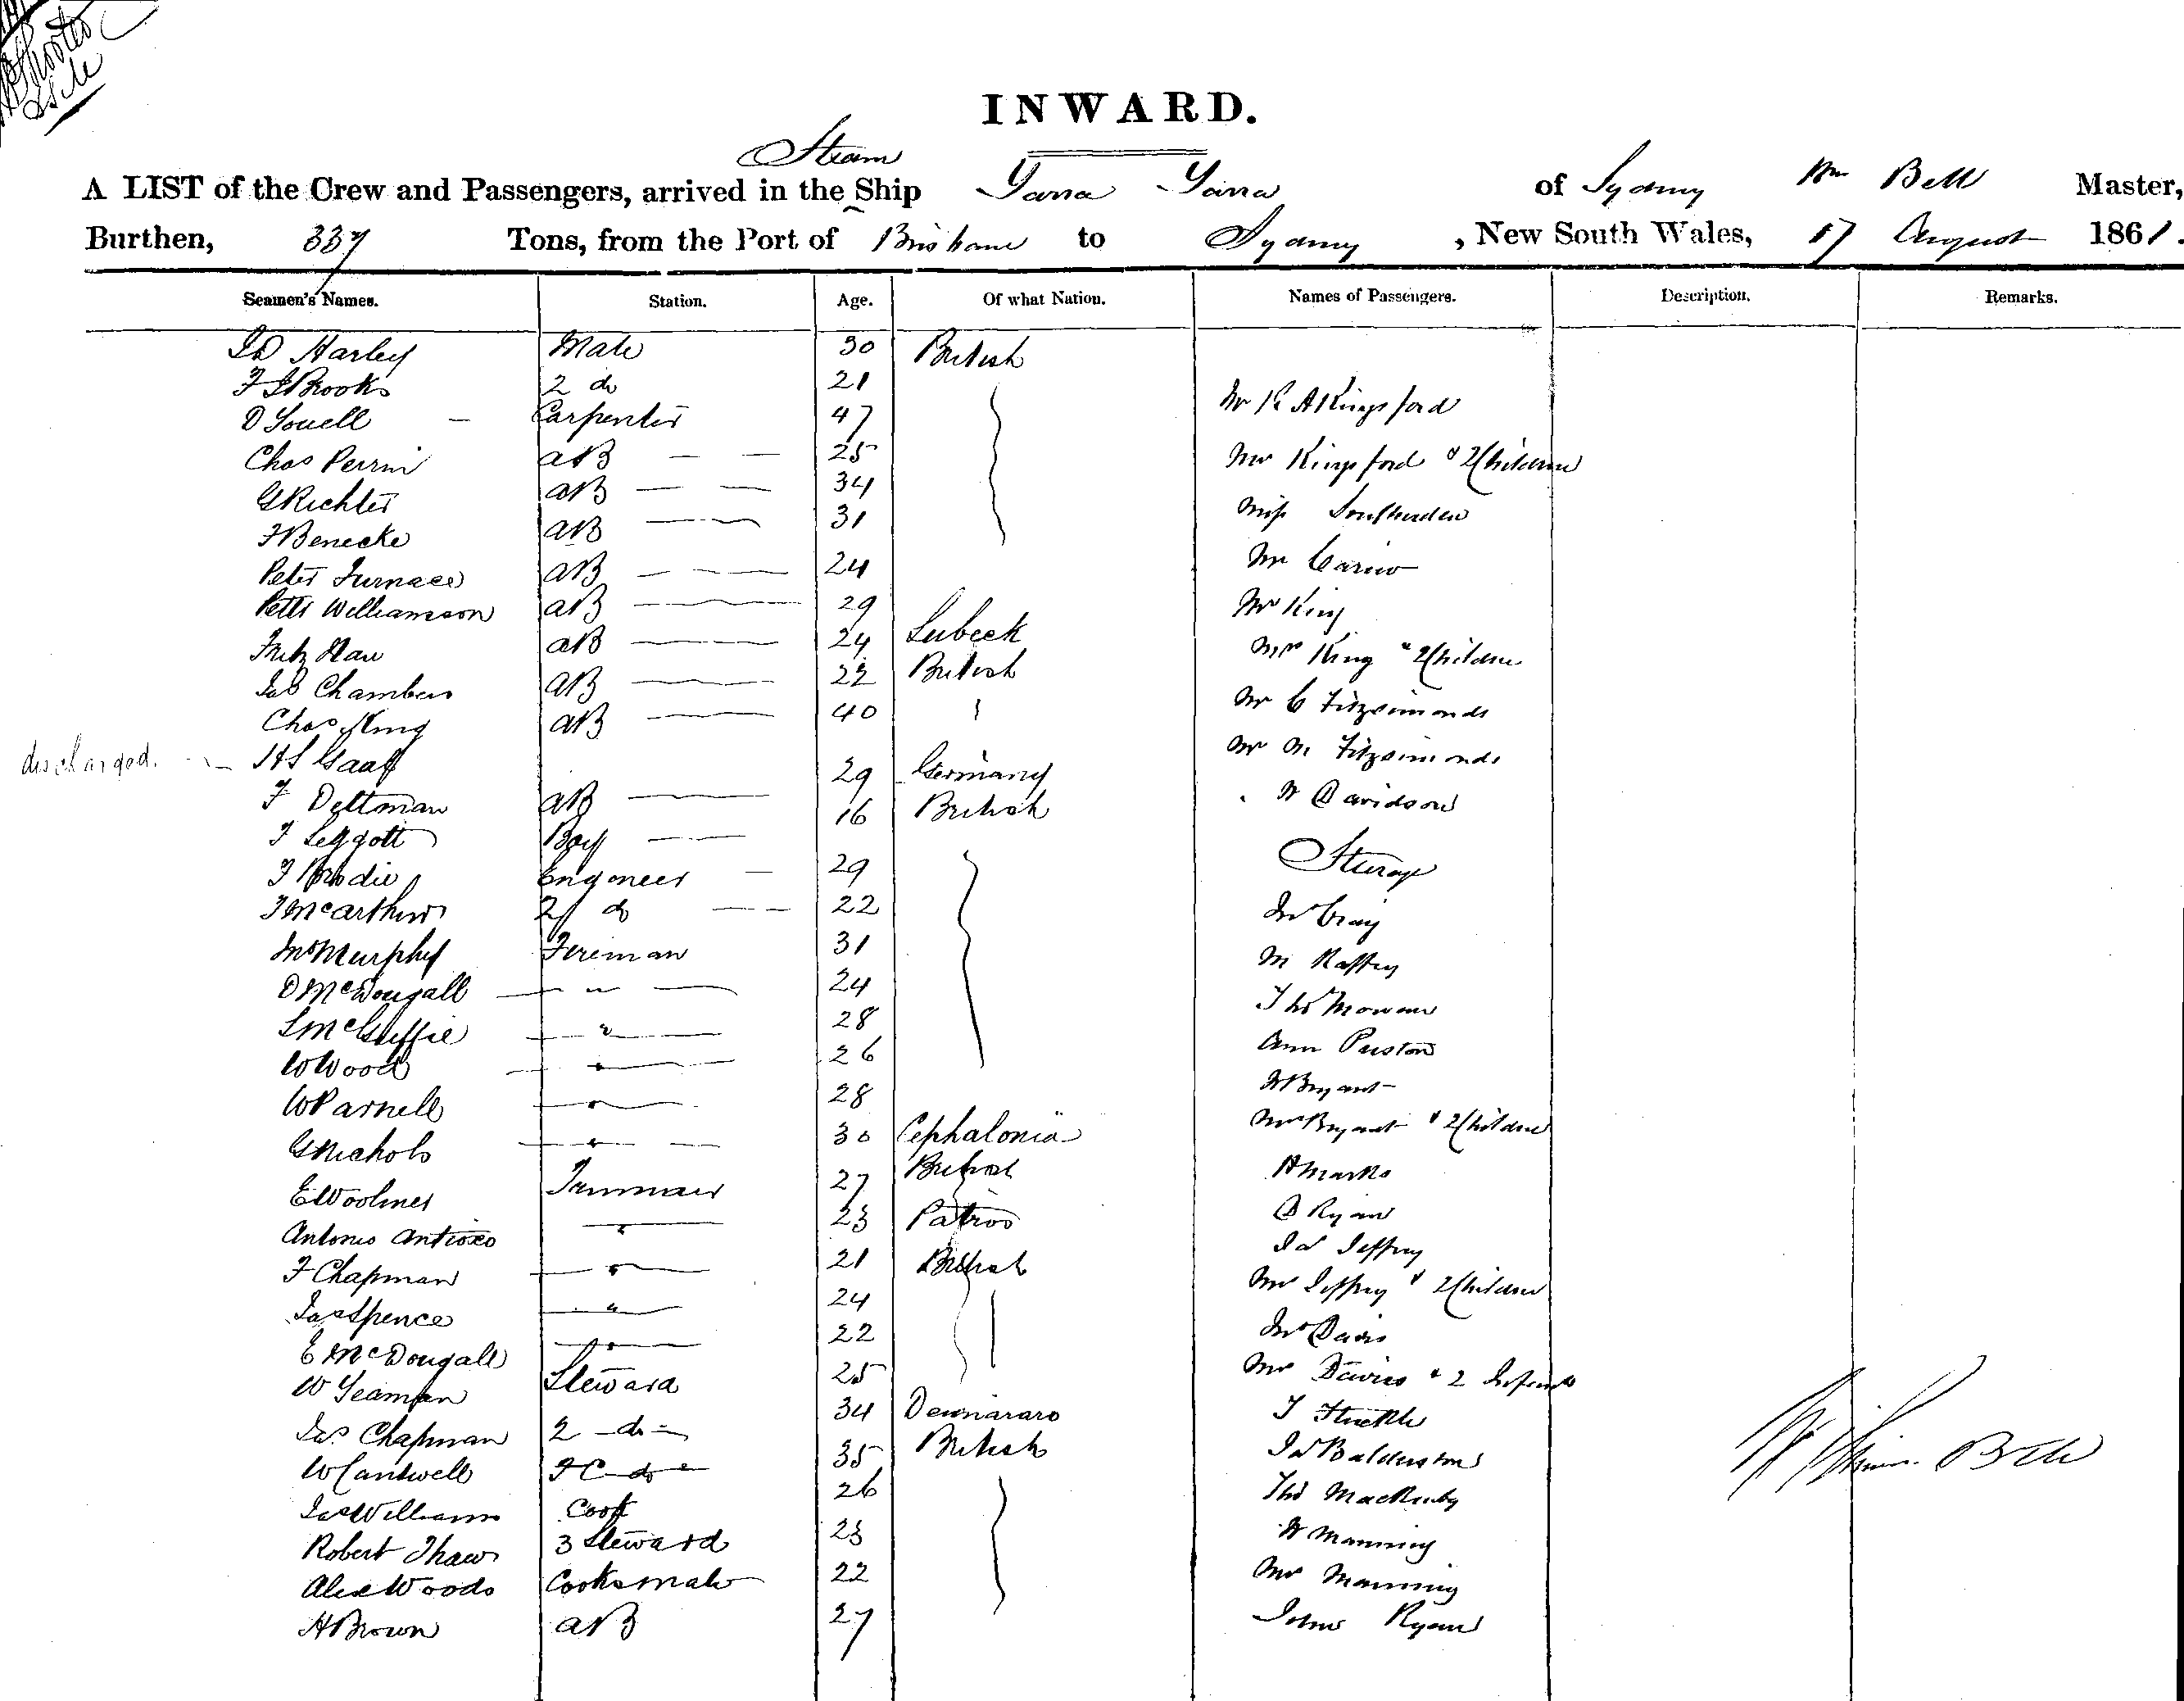 INWARD.
Steam
A LIST of the Crew and Passengers, arrived in the Ship Yarra Yarra of Sydney Wm Bell Master,
Burthen, 337 Tons, from the Port of Brisbane to Sydney, New South Wales, 17 August 1861.
Seamen's Names. Station. Age. Of what Nation. Names of Passengers. Description. Remarks.
Harley Mate 30 British
Brooks 2 do 21
D 47 Carpenter Mr R A Kingsford
Chas Perrin AB 25 Mrs Kingsford & 2 Children
G Richter AB 34
F Benecke AB 31 Miss Southerden
Peter Furnace AB 24 Mr
Peter Williamson AB 29 Mr King
Fritz AB 24 Lubeck Mrs King & 2 Children
Jas Chambers AB 22 British
Chas King AB 40 Mr C Fitzsimonds
discharged. H S Gaaf Mr M Fitzsimonds
F Dettman AB 29 Germany
F Leggott Boy 16 British W Davidson
J Brodie Engineer 29 Steerage
J McArthur 2 do 22 Craig
Jno Murphy Fireman 31 M Raffey
D McDougall " 24
S McGuffie " 28 Thos
W Wood " 26 Ann Preston
W Parnell " 28 W Bryant
G Nichols " 30 Cephalonia Mrs Bryant & 2 Children
E Woolmer Trimmer 27 British H Marks
Antonio " 23 Patros D Ryan
F Chapman " 21 British Jas Jeffrey
Jas Spence " 24 Mrs Jeffrey & 2 Children
E McDougall " 22 Davis
W Yeaman Steward 25 Mrs Davies & 2 Infants
Jas. Chapman 2 do 34 Demararo
W Cantwell F C do 35 British Jas Balderston
Jas Williams Cook 26 Thos
Robert Thaw 3 Steward 23 W Manning
Alex Woods Cooks mate 22 Mrs Manning
H Brown AB 27 John Ryan
William Bell